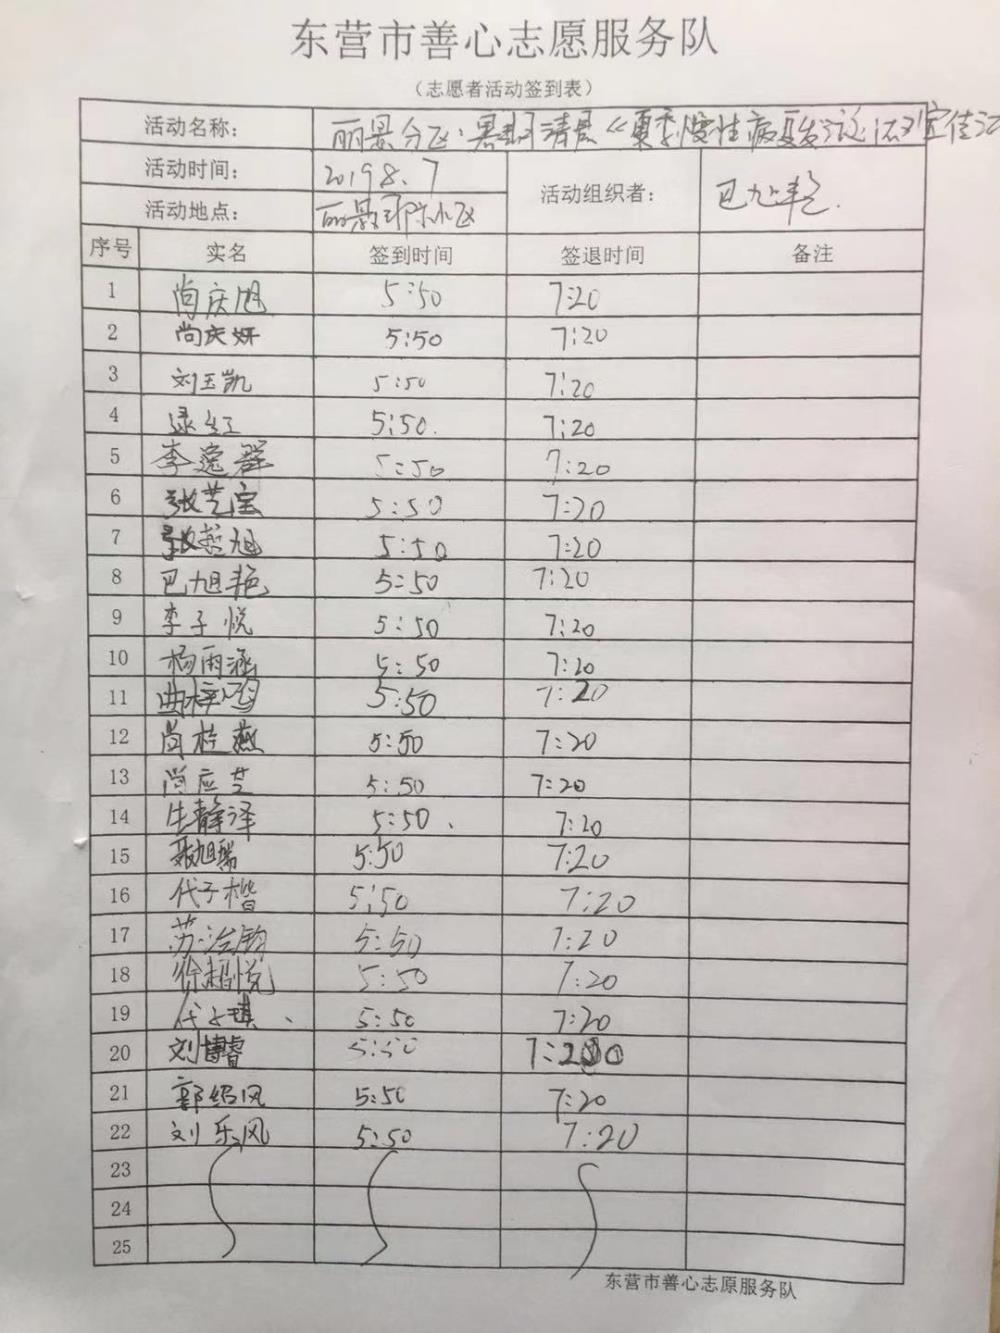 东营市善心志愿服务队
（志愿者活动签到表）
活动名称： 丽景分队·晨 清晨《夏季慢性病
活动时间： 2019 8.7 活动组织者： 巴旭艳
活动地点： 丽景 小区
序号 实名 签到时间 签退时间 备注
1 尚庆旭 5:50 7:20
2 尚庆妍 5:50 7:20
3 刘玉凯 5:50 7:20
4 绿红 5:50. 7:20
5 李逸群 5:50 7:20
6 张艺宝 5:50 7:20
7 张哲旭 5:50 7:20
8 巴旭艳 5:50 7:20
9 李子悦 5:50 7:20
10 杨雨涵 5:50 7:20
11 曲梓鸿 5:50 7:20
12 尚桂燕 5:50 7:20
13 尚应芝 5:50 7:20
14 生静泽 5:50. 7:20
15 聂旭瑞 5:50 7:20
16 代子楷 5:50 7:20
17 苏治钧 5:50 7:20
18 徐超悦 5:50 7:20
19 代子琪、 5:50 7:20
20 刘博睿 5:50 7:20
21 郭绍风 5:50 7:20
22 刘乐风 5:50 7:20
23
24
25
东营市善心志原服务队